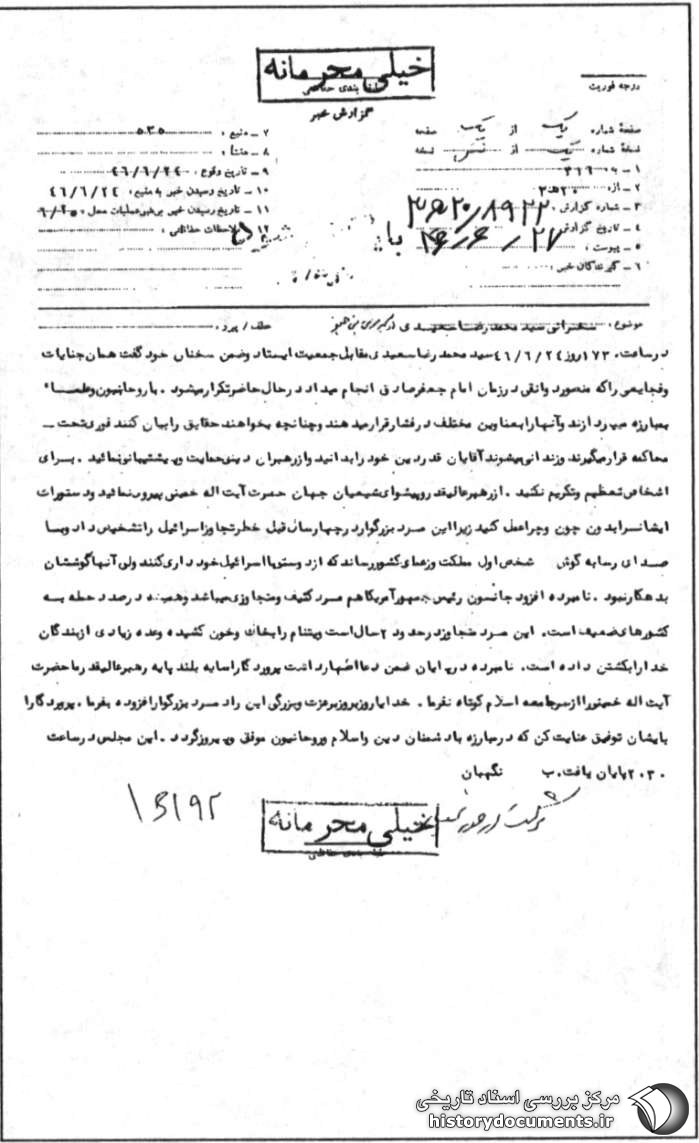 خیلی محرمانه
طبقه بندی حفاظتی
گزارش خبر
درجه فوریت
صفحهٔ شماره یک از یک صفحه
نسخهٔ شماره یک از نسخه
۱ ـ به ۳۱۶
۲ ـ از ۲۰ ه ۳
۳ ـ شماره گزارش ۸۹۲۲/
۴ ـ تاریخ گزارش ۲۷
۵ ـ پیوست :
۶ ـ گیرندگان خبر :
۷ ـ منبع : ۵۳۵
۸ ـ منشأ :
۹ ـ تاریخ وقوع : ۴۶/۶/۲۴
۱۰ ـ تاریخ رسیدن خبر به منبع : ۴۶/۶/۲۴
۱۱ ـ تاریخ رسیدن خبر برهبرعملیات محل :
۱۲ ـ ملاحظات حفاظتی :
موضوع : سخنرانی سید محمد رضا سعیدی
عطف / پیرو :
در ساعت ۱۷۳ روز ۴۶/۶/۲۴ سید محمد رضا سعیدی مقابل جمعیت ایستاد و ضمن سخنان خود گفت همان جنایات
وفجایعی را که منصور دوانقی در زمان امام جعفر صادق انجام میداد در حال حاضر تکرار میشود . با روحانیون و علماء
بمبارزه میپردازند و آنها را بعناوین مختلف در فشار قرار میدهند و چنانچه بخواهند حقایق را بیان کنند فوری تحت ـ
محاکمه قرار میگیرند و زندانی میشوند آقایان قدر دین خود را بدانید و از رهبران دینی حمایت و پشتیبانی نمائید . برای
اشخاص تعظیم و تکریم نکنید . از رهبر عالیقدر و پیشوای شیعیان جهان حضرت آیت اله خمینی پیروی نمائید و دستورات
ایشانرا بدون چون و چرا عمل کنید زیرا این مرد بزرگوار در چهار سال قبل خطر تجاوز اسرائیل را تشخیص داد و با
صدای رسا به گوش شخص اول مملکت و زعمای کشور رساند که از دوستی با اسرائیل خود داری کنند ولی آنها گوششان
بدهکار نبود . نامبرده افزود جانسون رئیس جمهور آمریکا هم مرد کثیف و متجاوزی میباشد و همیشه در صدد حمله به
کشورهای ضعیف است . این مرد متجاوز در حدود ۲ سال است ویتنام را بخاک و خون کشیده و عده زیادی از بندگان
خدا را بکشتن داده است . نامبرده در پایان ضمن دعا اظهار داشت پروردگارا سایه بلند پایه رهبر عالیقدر ما حضرت
آیت اله خمینی را از سر جامعه اسلام کوتاه نفرما . خدایا روز بروز بر عزت و بزرگی این راد مرد بزرگوار افزوده بفرما . پروردگارا
بایشان توفیق عنایت کن که در مبارزه با دشمنان دین و اسلام و روحانیون موفق و پیروز گردد . این مجلس در ساعت
۲۰۳۰ پایان یافت . ب نگهبان
خیلی محرمانه
طبقه بندی حفاظتی
مرکز بررسی اسناد تاریخی
historydocuments.ir